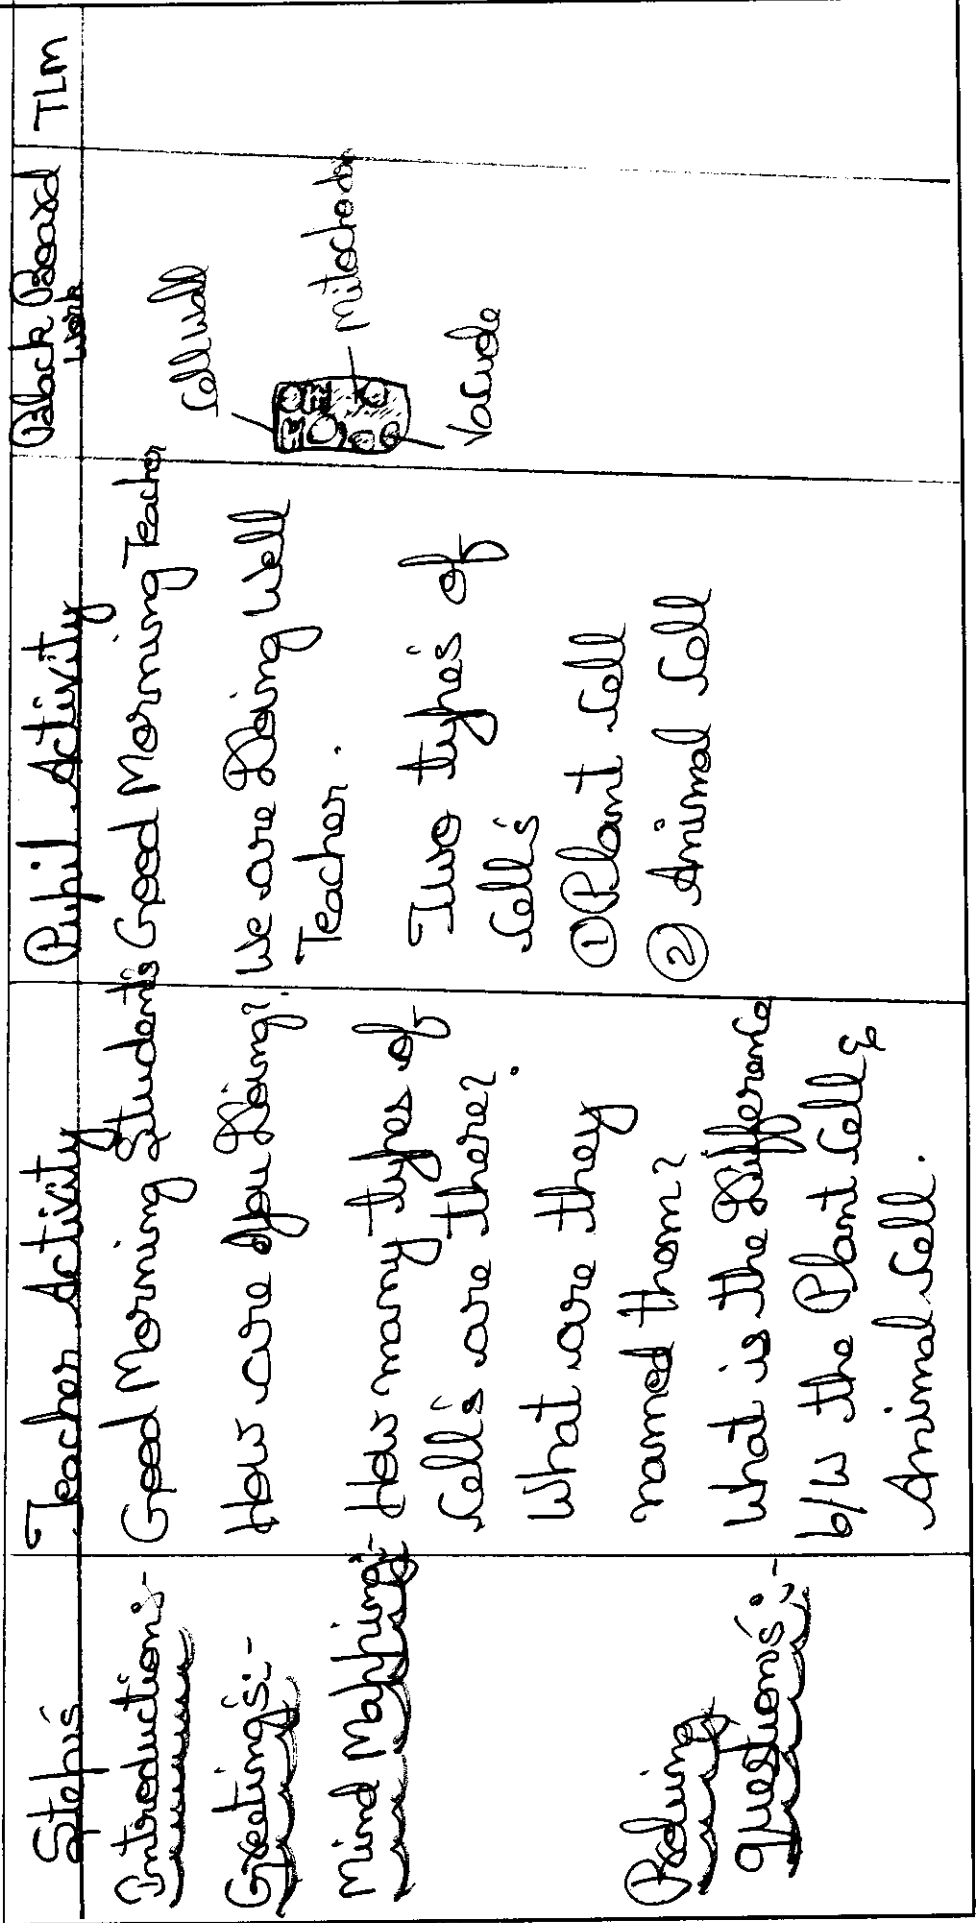 Step's Teacher Activity Pupil Activity Black Board TLM
Work
Introduction:- Good Morning Student's Good Morning Teacher
Greeting's:- How are you Doing? We are Doing Well
Teacher.
Mind Mapping:- How many types of
Cell's are there?
Two types of
Cell's
What are they
named them?
① Plant Cell
② Animal Cell
Probing
Question's:-
What is the Difference
b/w the Plant Cell &
Animal Cell.
Cell wall
Mitochodin
Vacuole